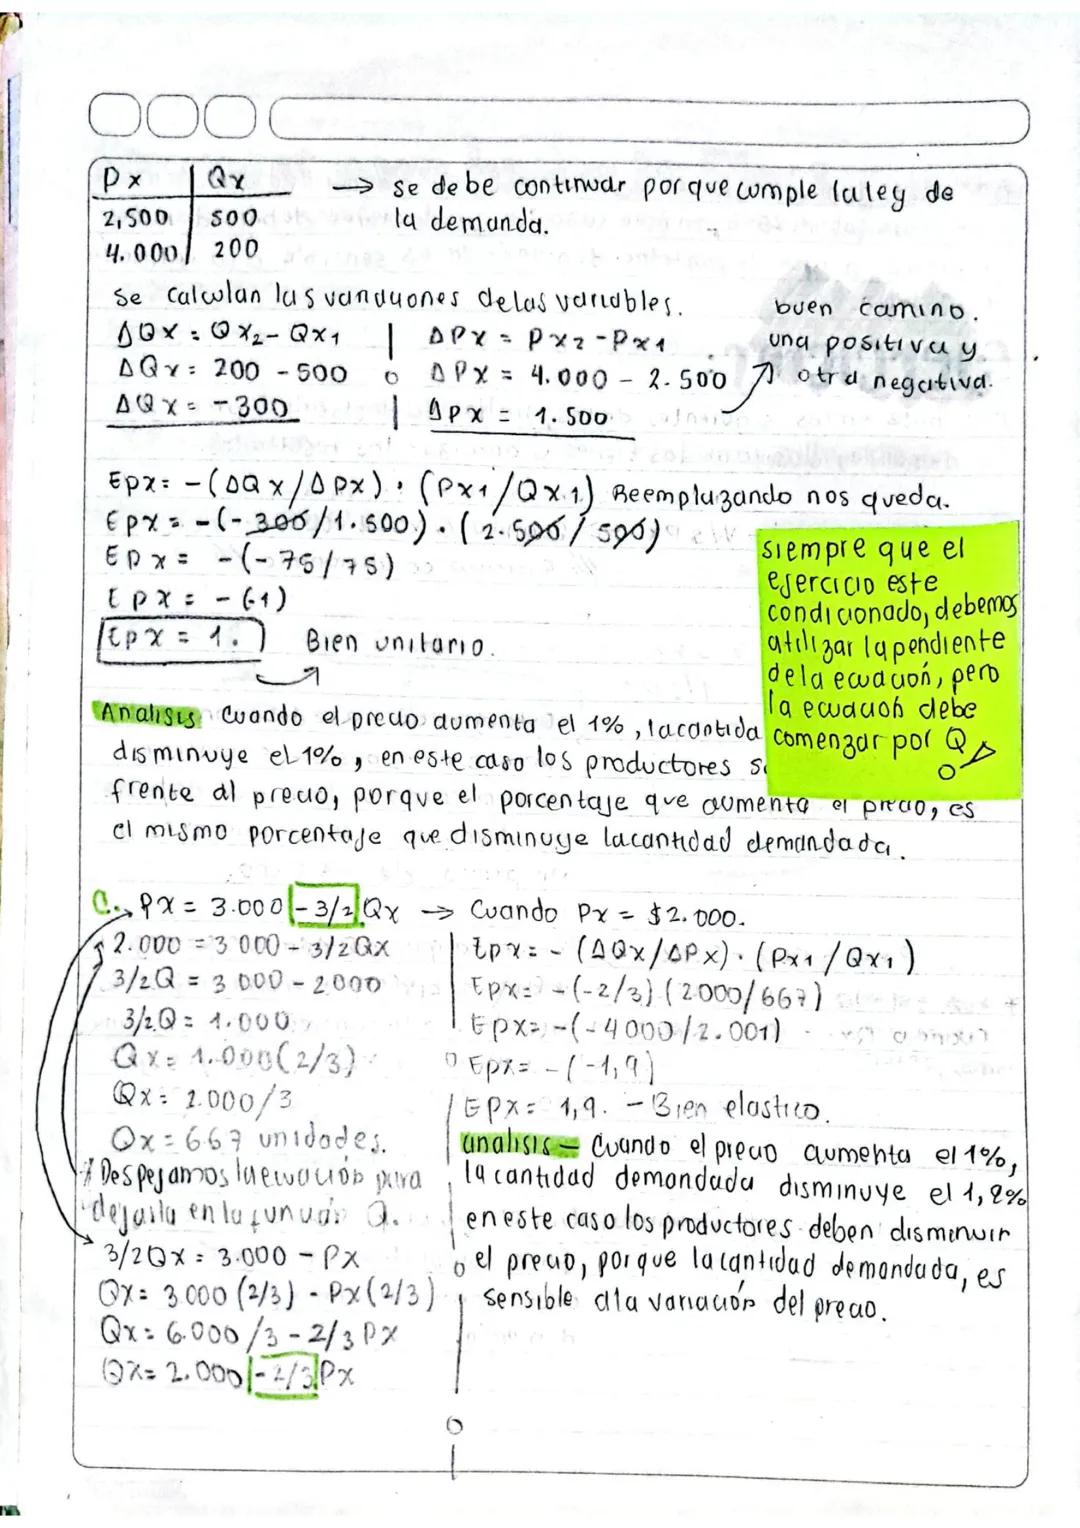 Px | Qx → se debe continuar porque cumple la ley de
2,500 | 500 la demanda.
4.000 | 200
Se calculan las variaciones de las variables.
ΔQx = Qx2 - Qx1 | ΔPx = Px2 - Px1
ΔQx = 200 - 500 | ΔPx = 4.000 - 2.500
ΔQx = -300 | ΔPx = 1.500
buen camino.
una positiva y
otra negativa.
Epx= -(ΔQx/ΔPx) · (Px1/Qx1) Reemplazando nos queda.
Epx = -(-300/1.500) · (2.500/500)
Epx = -(-75/75)
Epx = -(-1)
Epx = 1. Bien unitario.
siempre que el
ejercicio este
condicionado, debemos
utilizar la pendiente
de la ecuación, pero
la ecuación debe
comenzar por Q
Analisis Cuando el precio aumenta el 1%, la cantida
disminuye el 1%, en este caso los productores s
frente al precio, porque el porcentaje que aumenta el precio, es
el mismo porcentaje que disminuye la cantidad demandada.
C. Px = 3.000 - 3/2 Qx → Cuando Px = $2.000.
2.000 = 3 000 - 3/2Qx
3/2Q = 3 000 - 2000
3/2Q = 1.000
Qx= 1.000(2/3)
Qx= 2.000/3
Qx = 667 unidades.
* Despejamos la ecuación para
dejarla en la función Q.
3/2Qx = 3.000 - Px
Qx= 3 000 (2/3) - Px(2/3)
Qx= 6.000/3 - 2/3 Px
Qx= 2.000 - 2/3 Px
Epx= - (ΔQx/ΔPx) · (Px1/Qx1)
Epx= -(-2/3) (2000/667)
Epx= -(-4000/2.001)
Epx= -(-1,9)
Epx= 1,9. - Bien elastico.
analisis - Cuando el precio aumenta el 1%,
la cantidad demandada disminuye el 1,9%
en este caso los productores deben disminuir
el precio, porque la cantidad demandada, es
sensible a la variación del precio.